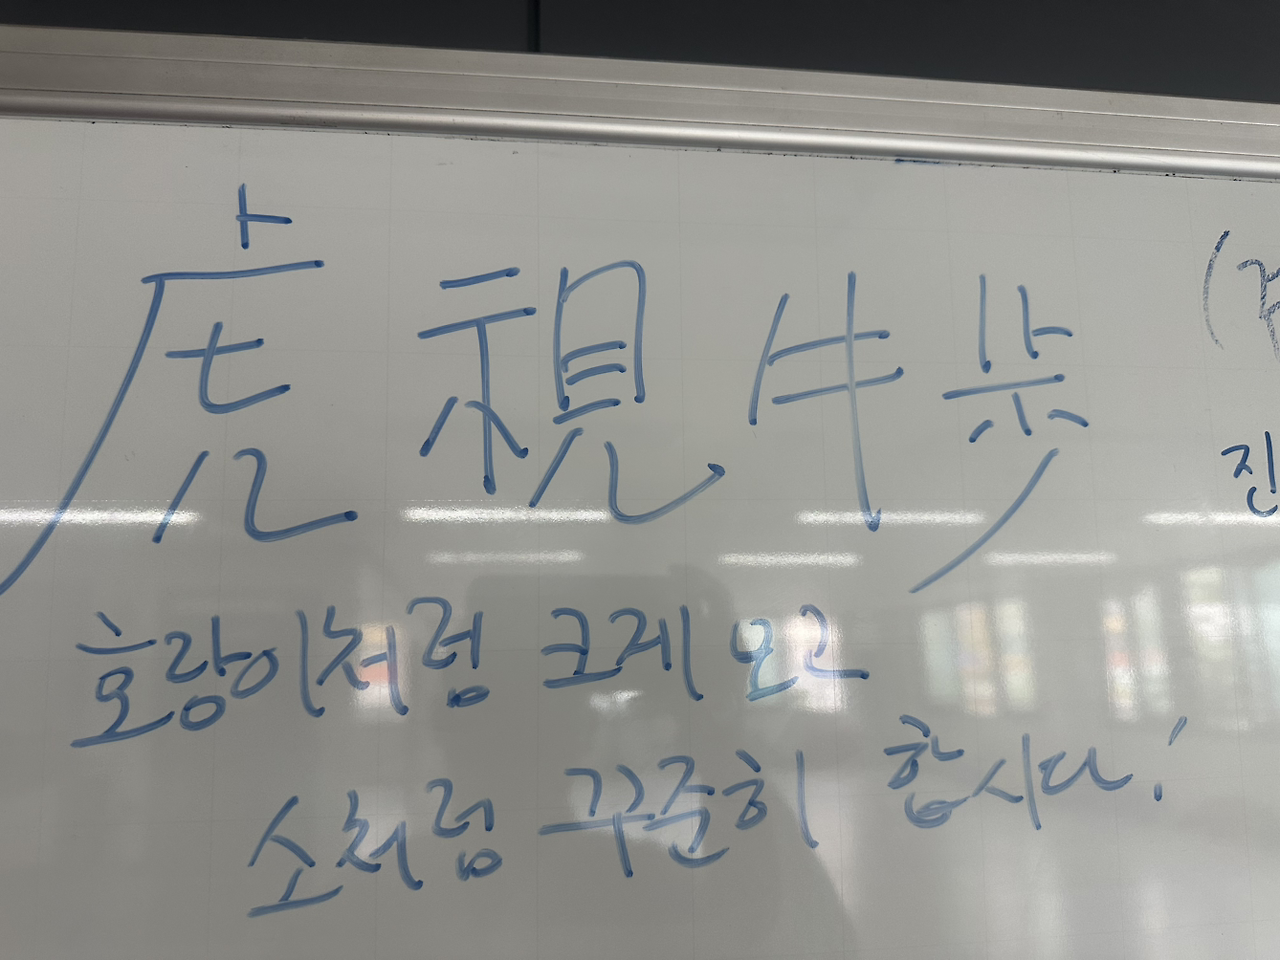 虎視牛步
호랑이처럼 크게 보고
소처럼 꾸준히 합시다!
진